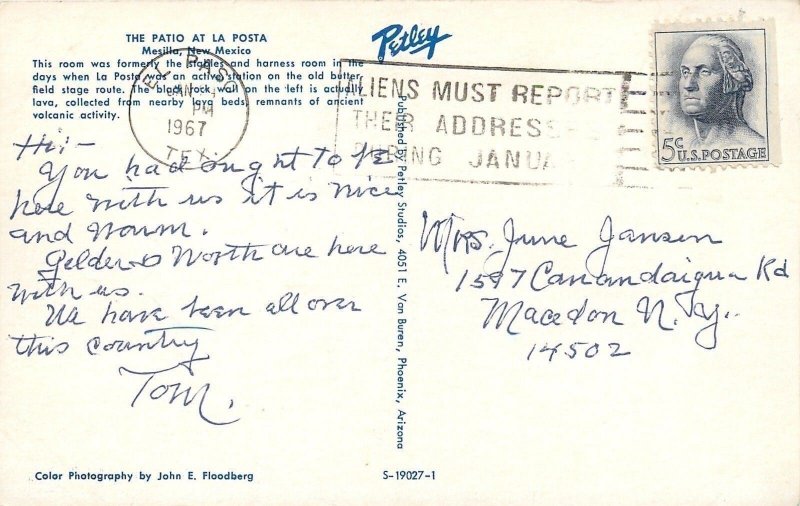 THE PATIO AT LA POSTA
Mesilla, New Mexico
This room was formerly the stables and harness room in the
days when La Posta was an active station on the old butter
field stage route. The black rock wall on the left is actually
lava, collected from nearby lava beds, remnants of ancient
volcanic activity.
Petley
EL PASO
JAN
PM
1967
TEX
ALIENS MUST REPORT
THEIR ADDRESS
DURING JANUA
5c U.S. POSTAGE
Hi:-
You had ought to be
here with us it is nice
and warm.
Gelder & Worth are here
with us.
We have been all over
this country
Tom.
Published by Petley Studios, 4051 E. Van Buren, Phoenix, Arizona
Mrs. June Jansen
1597 Canandaigua Rd
Macedon N.Y.
14502
Color Photography by John E. Floodberg
S-19027-1